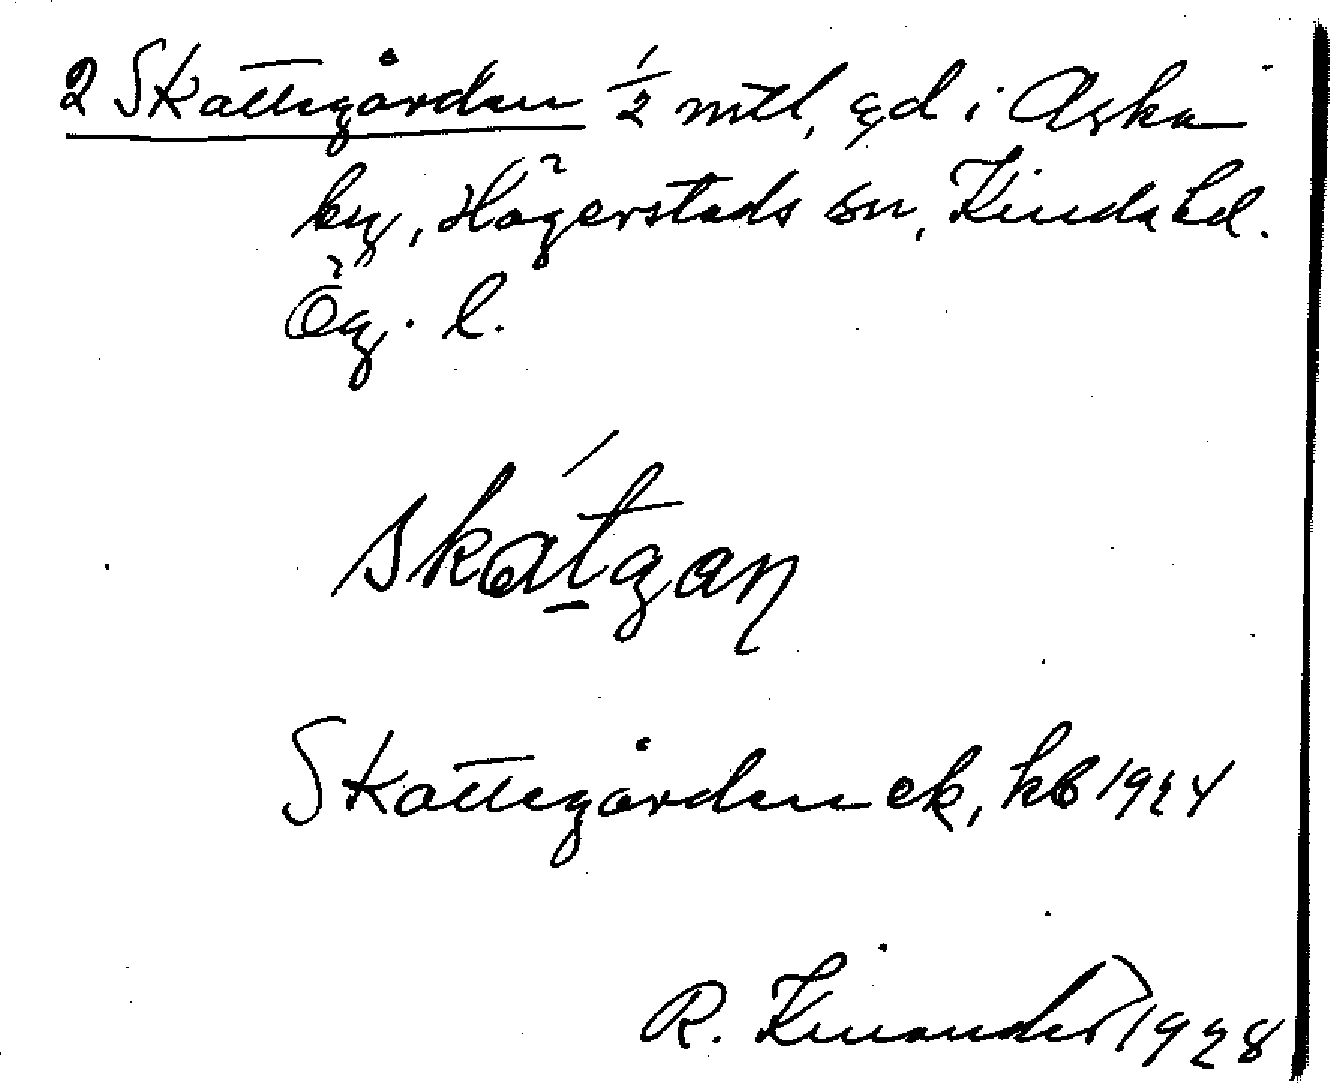 2 Skattegården 1/2 mtl, gd i Aska
by, Högerstads sn, Kinda hd.
Ög. l.
skátgaɳ
Skattegården ek, kb 1924
R. Kinander 1928